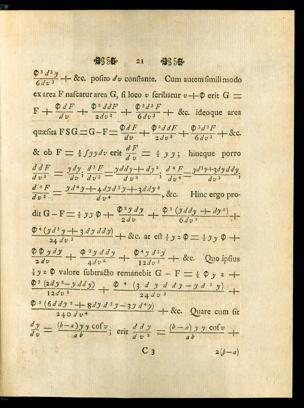 21
Φ³d³y/6dv³ + &c. posito dv constante. Cum autem simili modo
ex area F nascatur area G, si loco v scribatur v+Φ erit G =
F + ΦdF/dv + Φ²ddF/2dv² + Φ³d³F/6dv³ + &c. ideoque area
quæsita FSG = G−F = ΦdF/dv + Φ²ddF/2dv² + Φ³d³F/6dv³ + &c.
& ob F = ½∫yydv erit dF/dv = ½yy; hincque porro
ddF/dv² = ydy/dv; d³F/dv³ = yddy+dy²/dv²; d⁴F/dv⁴ = yd³y+3dyddy/dv³
, &c. Hinc ergo pro-
dit G−F = ½yyΦ + Φ²ydy/2dv + Φ³(yddy+dy²)/6dv² +
Φ⁴(yd³y+3dyddy)/24dv³ + &c. at est ½yzΦ = ½yyΦ +
ΦΦydy/2dv + Φ³yddy/4dv² + Φ⁴yd³y/12dv³ + &c. Quo ipsius
½yzΦ valore subtracto remanebit G−F = ½Φyz +
Φ³(2dy²−yddy)/12dv² + Φ⁴(3dyddy−yd³y)/24dv³ +
+ &c. Quare cum sit
dy/dv = (b−a)yy cos v/ab; erit ddy/dv² = (b−a)yy cos v/ab +
C 3 2(b−a)